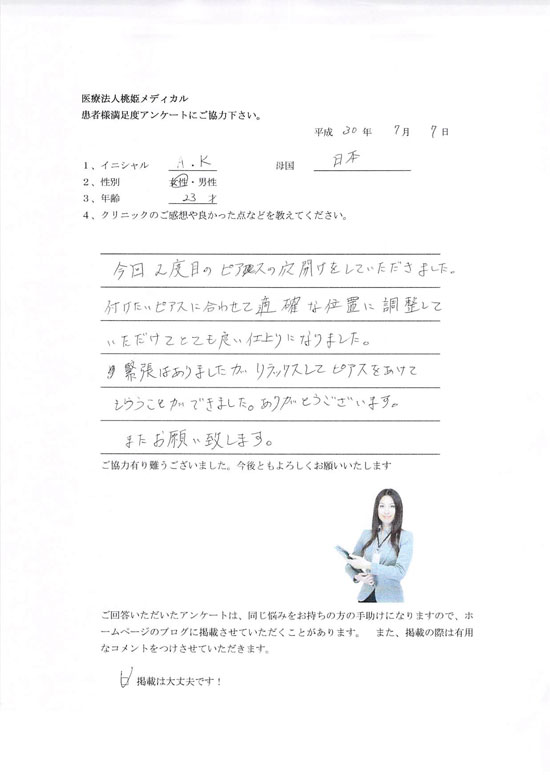 医療法人桃姫メディカル
患者様満足度アンケートにご協力下さい。
平成 30 年 7 月 7 日
1、イニシャル A.K 母国 日本
2、性別 女性・男性
3、年齢 23 才
4、クリニックのご感想や良かった点などを教えてください。
今回2度目のピアスの穴開けをしていただきました。
付けたいピアスに合わせて適確な位置に調整して
いただけてとても良い仕上りになりました。
緊張はありましたが リラックスしてピアスをあけて
もらうことができました。ありがとうございます。
またお願い致します。
ご協力有り難うございました。今後ともよろしくお願いいたします
ご回答いただいたアンケートは、同じ悩みをお持ちの方の手助けになりますので、ホ
ームページのブログに掲載させていただくことがあります。 また、掲載の際は有用
なコメントをつけさせていただきます。
掲載は大丈夫です！